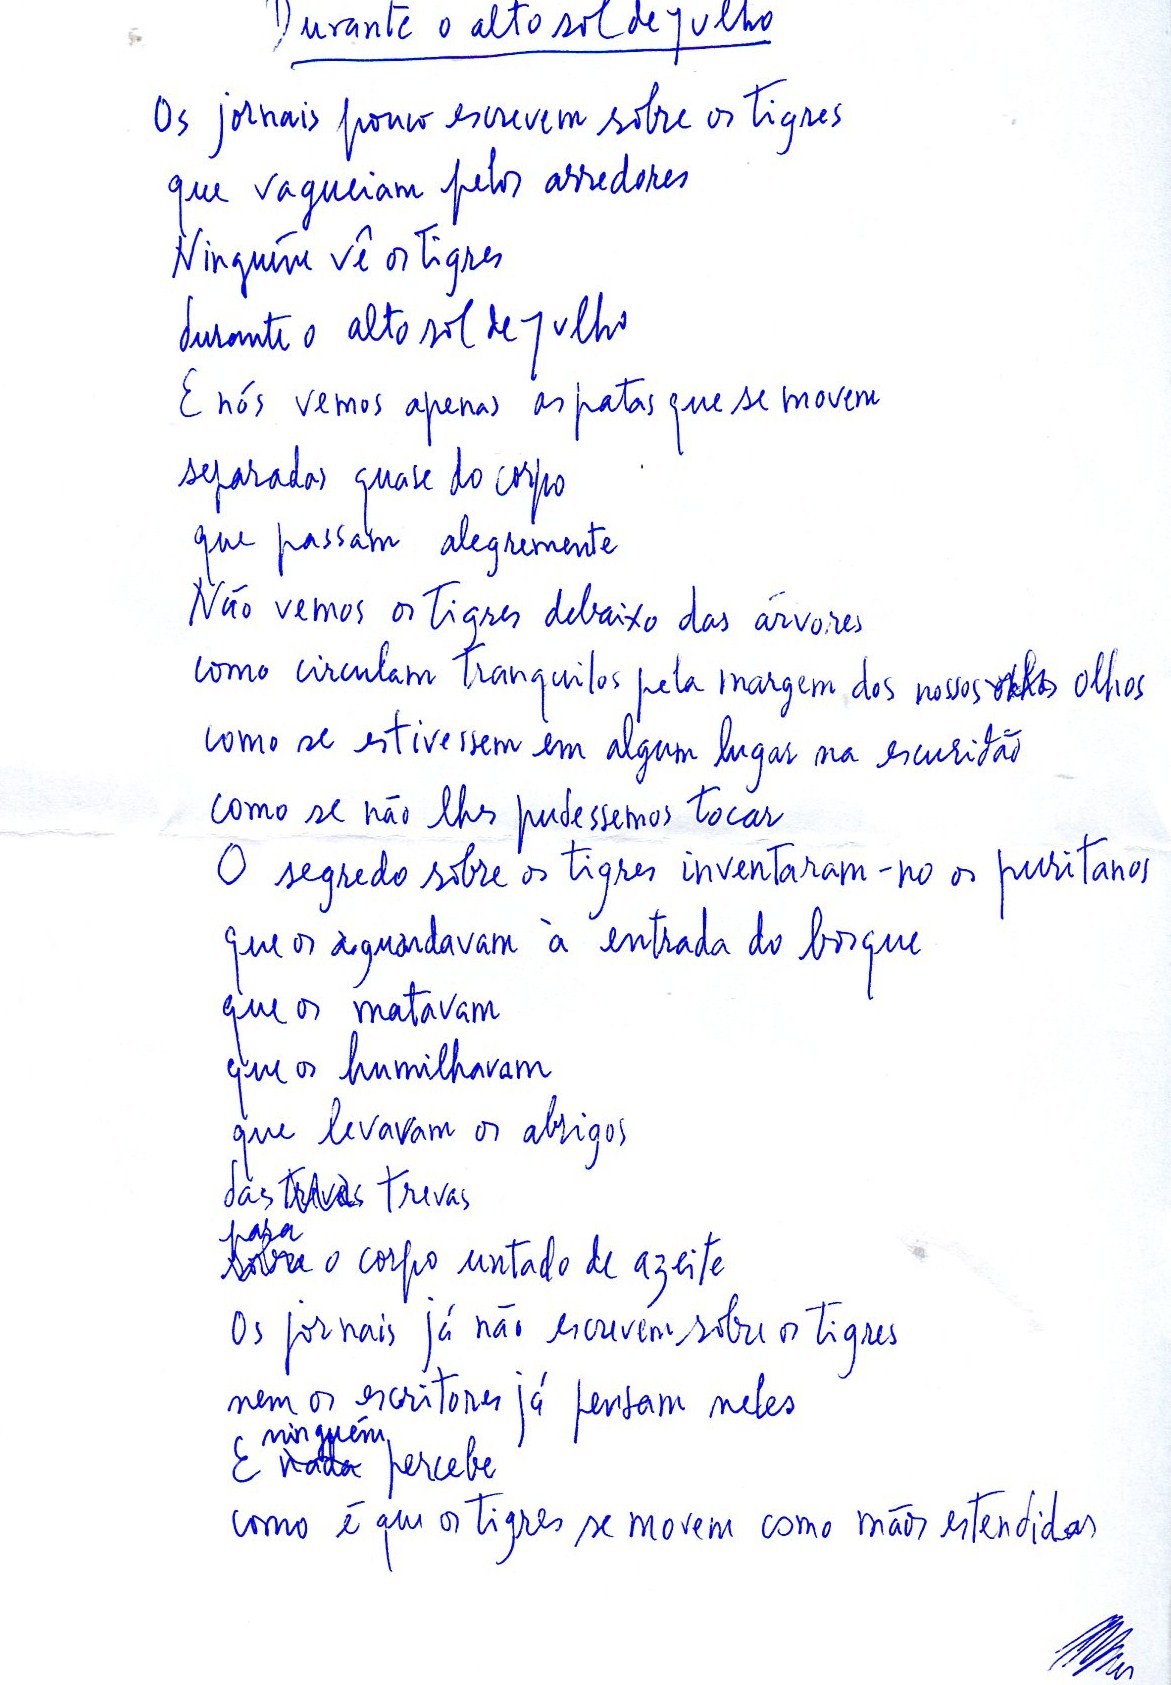 Durante o alto sol de julho
Os jornais pouco escrevem sobre os tigres
que vagueiam pelos arredores
Ninguém vê os tigres
durante o alto sol de julho
E nós vemos apenas as patas que se movem
separadas quase do corpo
que passam alegremente
Não vemos os tigres debaixo das árvores
como circulam tranquilos pela margem dos nossos olhos
como se estivessem em algum lugar na escuridão
como se não lhes pudessemos tocar
O segredo sobre os tigres inventaram-no os puritanos
que os aguardavam à entrada do bosque
que os matavam
que os humilhavam
que levavam os abrigos
das trevas trevas
para
sobre o corpo untado de azeite
Os jornais já não escrevem sobre os tigres
nem os escritores já pensam neles
ninguém
E nada percebe
como é que os tigres se movem como mãos estendidas